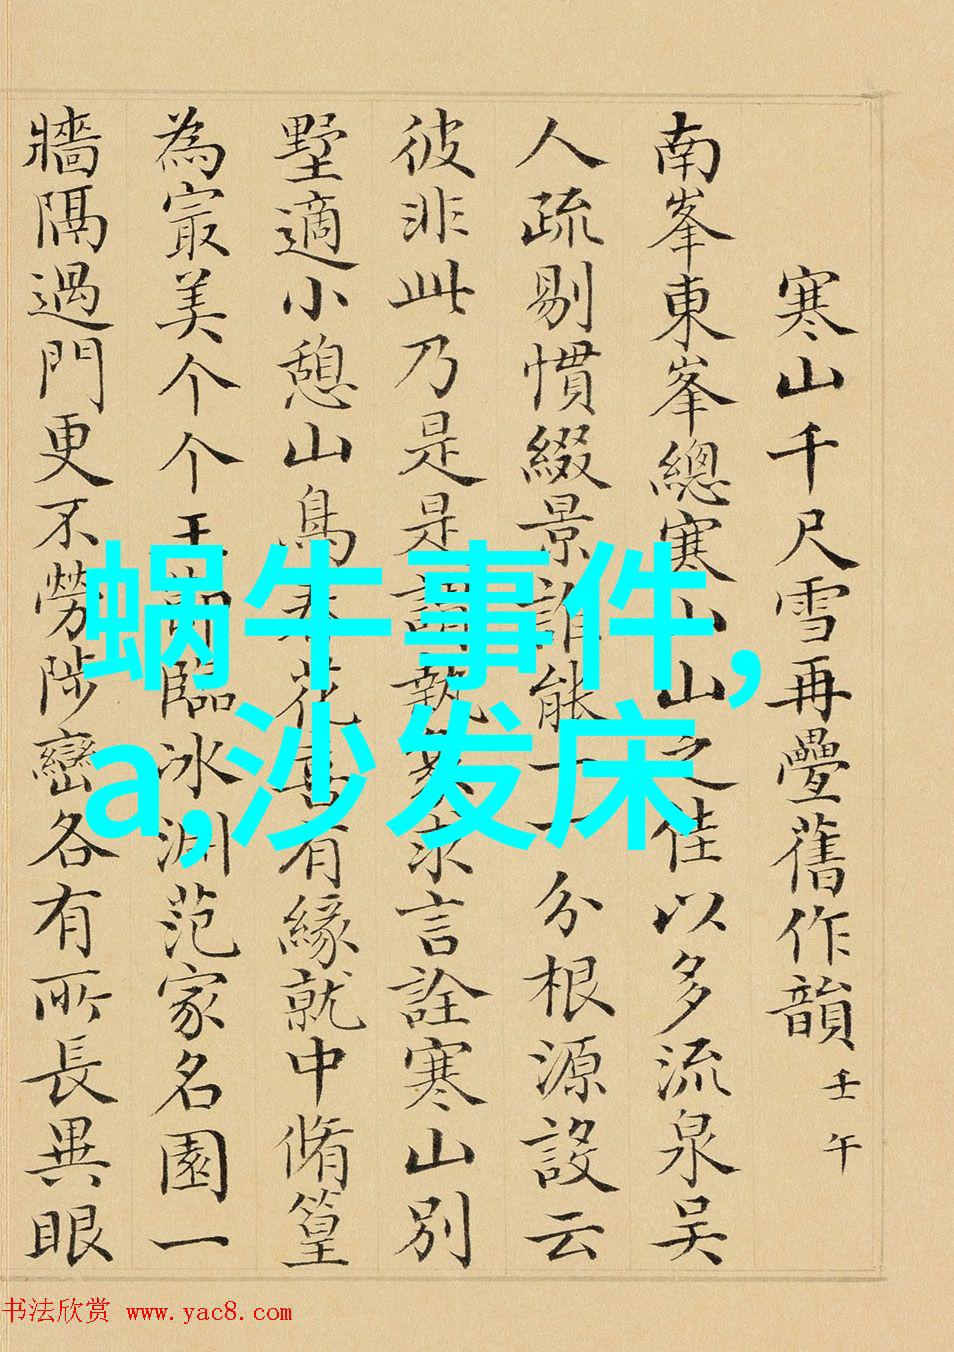 寒山千尺雪再疊舊作韻 壬午
南峯東峯總寒山山之佳以多流泉吳
人疏剔慣綴景誰能一一分根源設云
彼非此乃是是謂執求言詮寒山別
墅適小憩山鳥花喜有緣就中脩篁
為㝡美个个玉臨冰淵范家名園一
牆隔過門更不勞陟巒各有所長異眼
蜗牛事件,
a,沙发床
书法欣赏 www.yac8.com